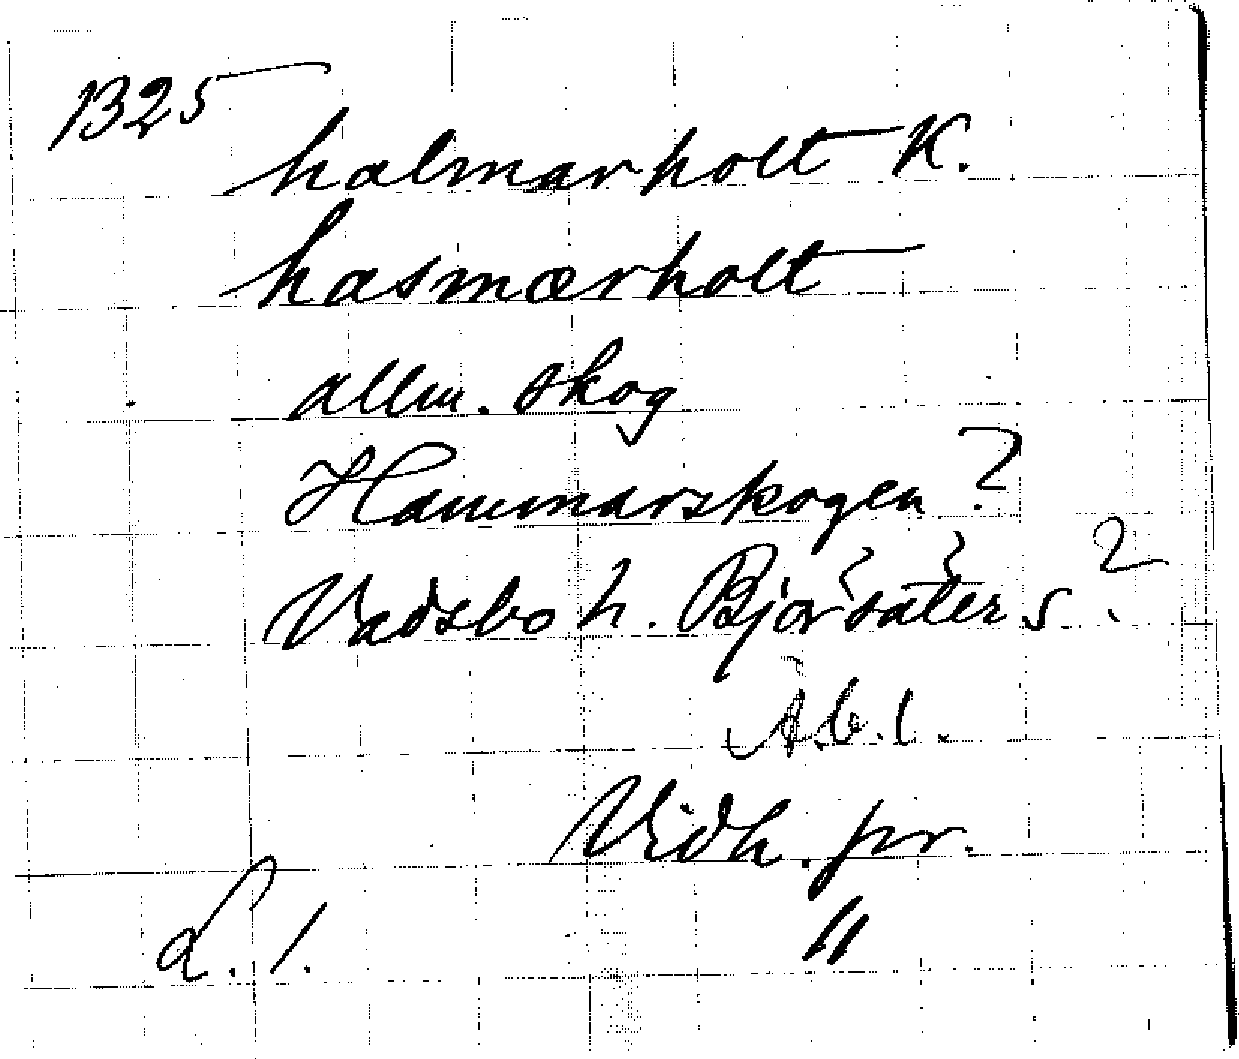 1325
halmarholt K.
hasmærholt
allm. skog
Hammarskogen ?
Vadsbo h. Björsäter s. ?
Ab. l.
Vidh. pr.
L. 1. "